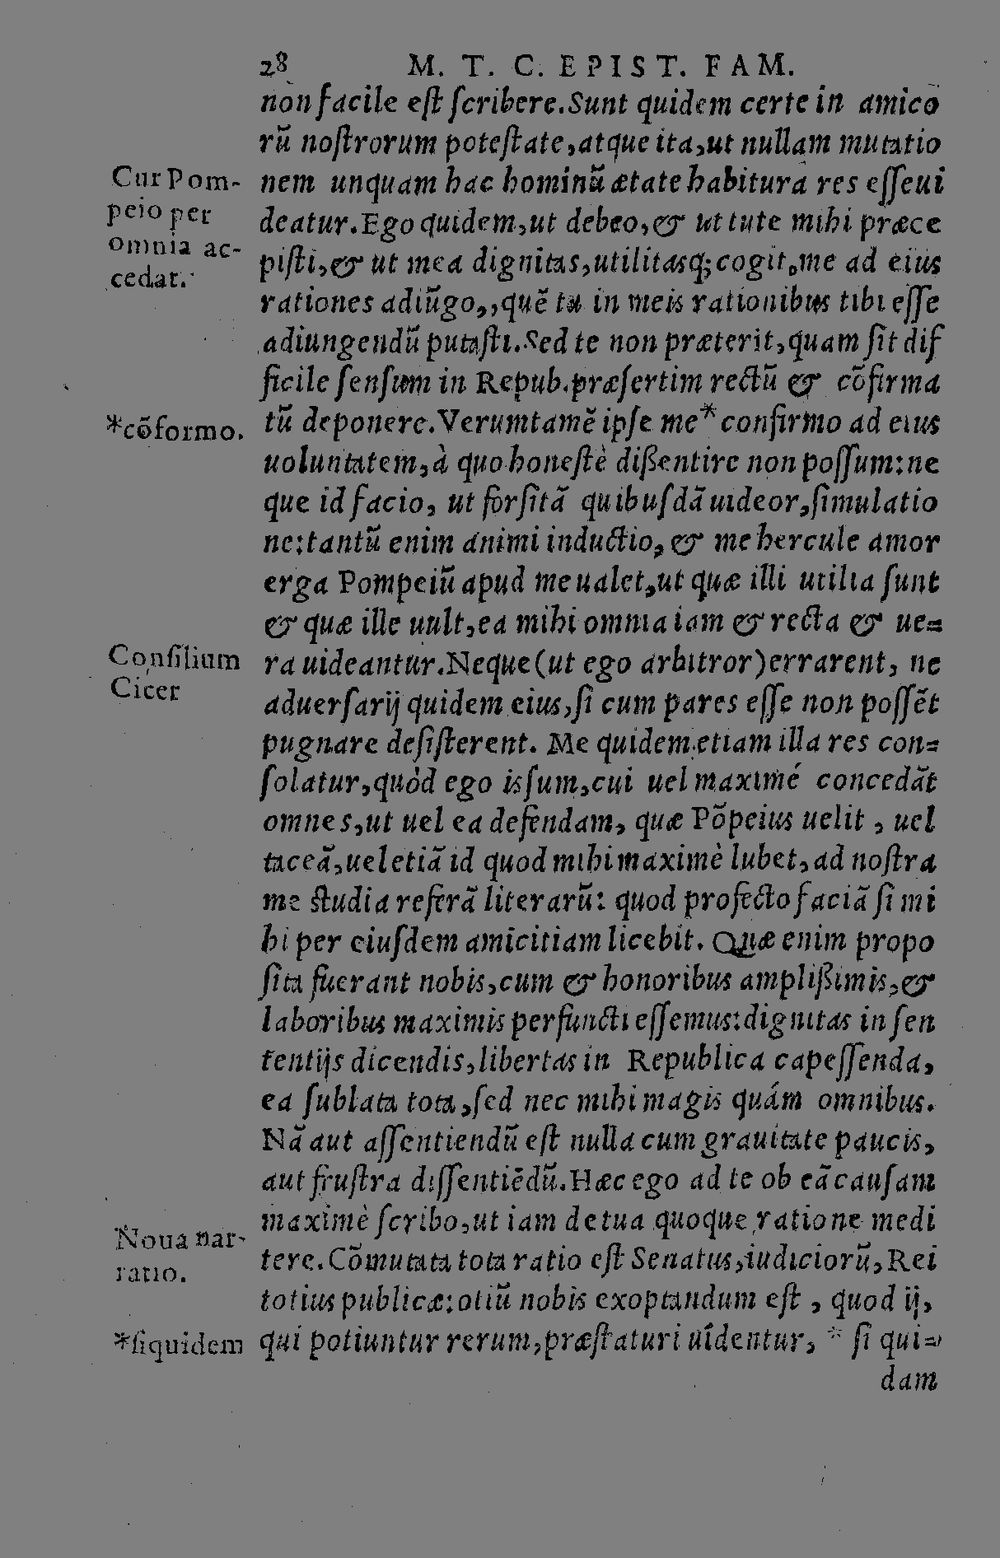 28 M. T. C. EPIST. FAM.
non facile est scribere. Sunt quidem certe in amico
rũ nostrorum potestate, atque ita, ut nullam mutatio
nem unquam hac hominũ ætate habitura res esse ui
deatur. Ego quidem, ut debeo, & ut tute mihi præce
pisti, & ut mea dignitas, utilitasq; cogit, me ad eius
rationes adiũgo, quẽ tu in meis rationibus tibi esse
adiungendũ putasti. Sed te non præterit, quam sit dif
ficile sensum in Repub. præsertim rectũ & cõfirma
tũ deponere. Verumtamẽ ipse me * confirmo ad eius
uoluntatem, à quo honestè dißentire non possum: ne
que id facio, ut forsitã quibusdã uideor, simulatio
ne: tantũ enim animi inductio, & mehercule amor
erga Pompeiũ apud me ualet, ut quæ illi utilia sunt
& quæ ille uult, ea mihi omnia iam & recta & ue=
ra uideantur. Neque (ut ego arbitror) errarent, ne
aduersarij quidem eius, si cum pares esse non possẽt
pugnare desisterent. Me quidem etiam illa res con=
solatur, quòd ego is sum, cui uel maximé concedãt
omnes, ut uel ea defendam, quæ Põpeius uelit, uel
taceã, uel etiã id quod mihi maximè lubet, ad nostra
me studia referã literarũ: quod profecto faciã si mi
hi per eiusdem amicitiam licebit. Quæ enim propo
sita fuerant nobis, cum & honoribus amplißimis, &
laboribus maximis perfuncti essemus: dignitas in sen
tentijs dicendis, libertas in Republica capessenda,
ea sublata tota, sed nec mihi magis quám omnibus.
Nã aut assentiendũ est nulla cum grauitate paucis,
aut frustra dissentiẽdũ. Hæc ego ad te ob eã causam
maximè scribo, ut iam de tua quoque ratione medi
tere. Cõmutata tota ratio est Senatus, iudiciorũ, Rei
totius publicæ: otiũ nobis exoptandum est, quod ij,
qui potiuntur rerum, præstaturi uidentur, * si qui=
dam
Cur Pom-
peio per
omnia ac-
cedat.
*cõformo.
Consilium
Cicer
Noua nar-
ratio.
*siquidem